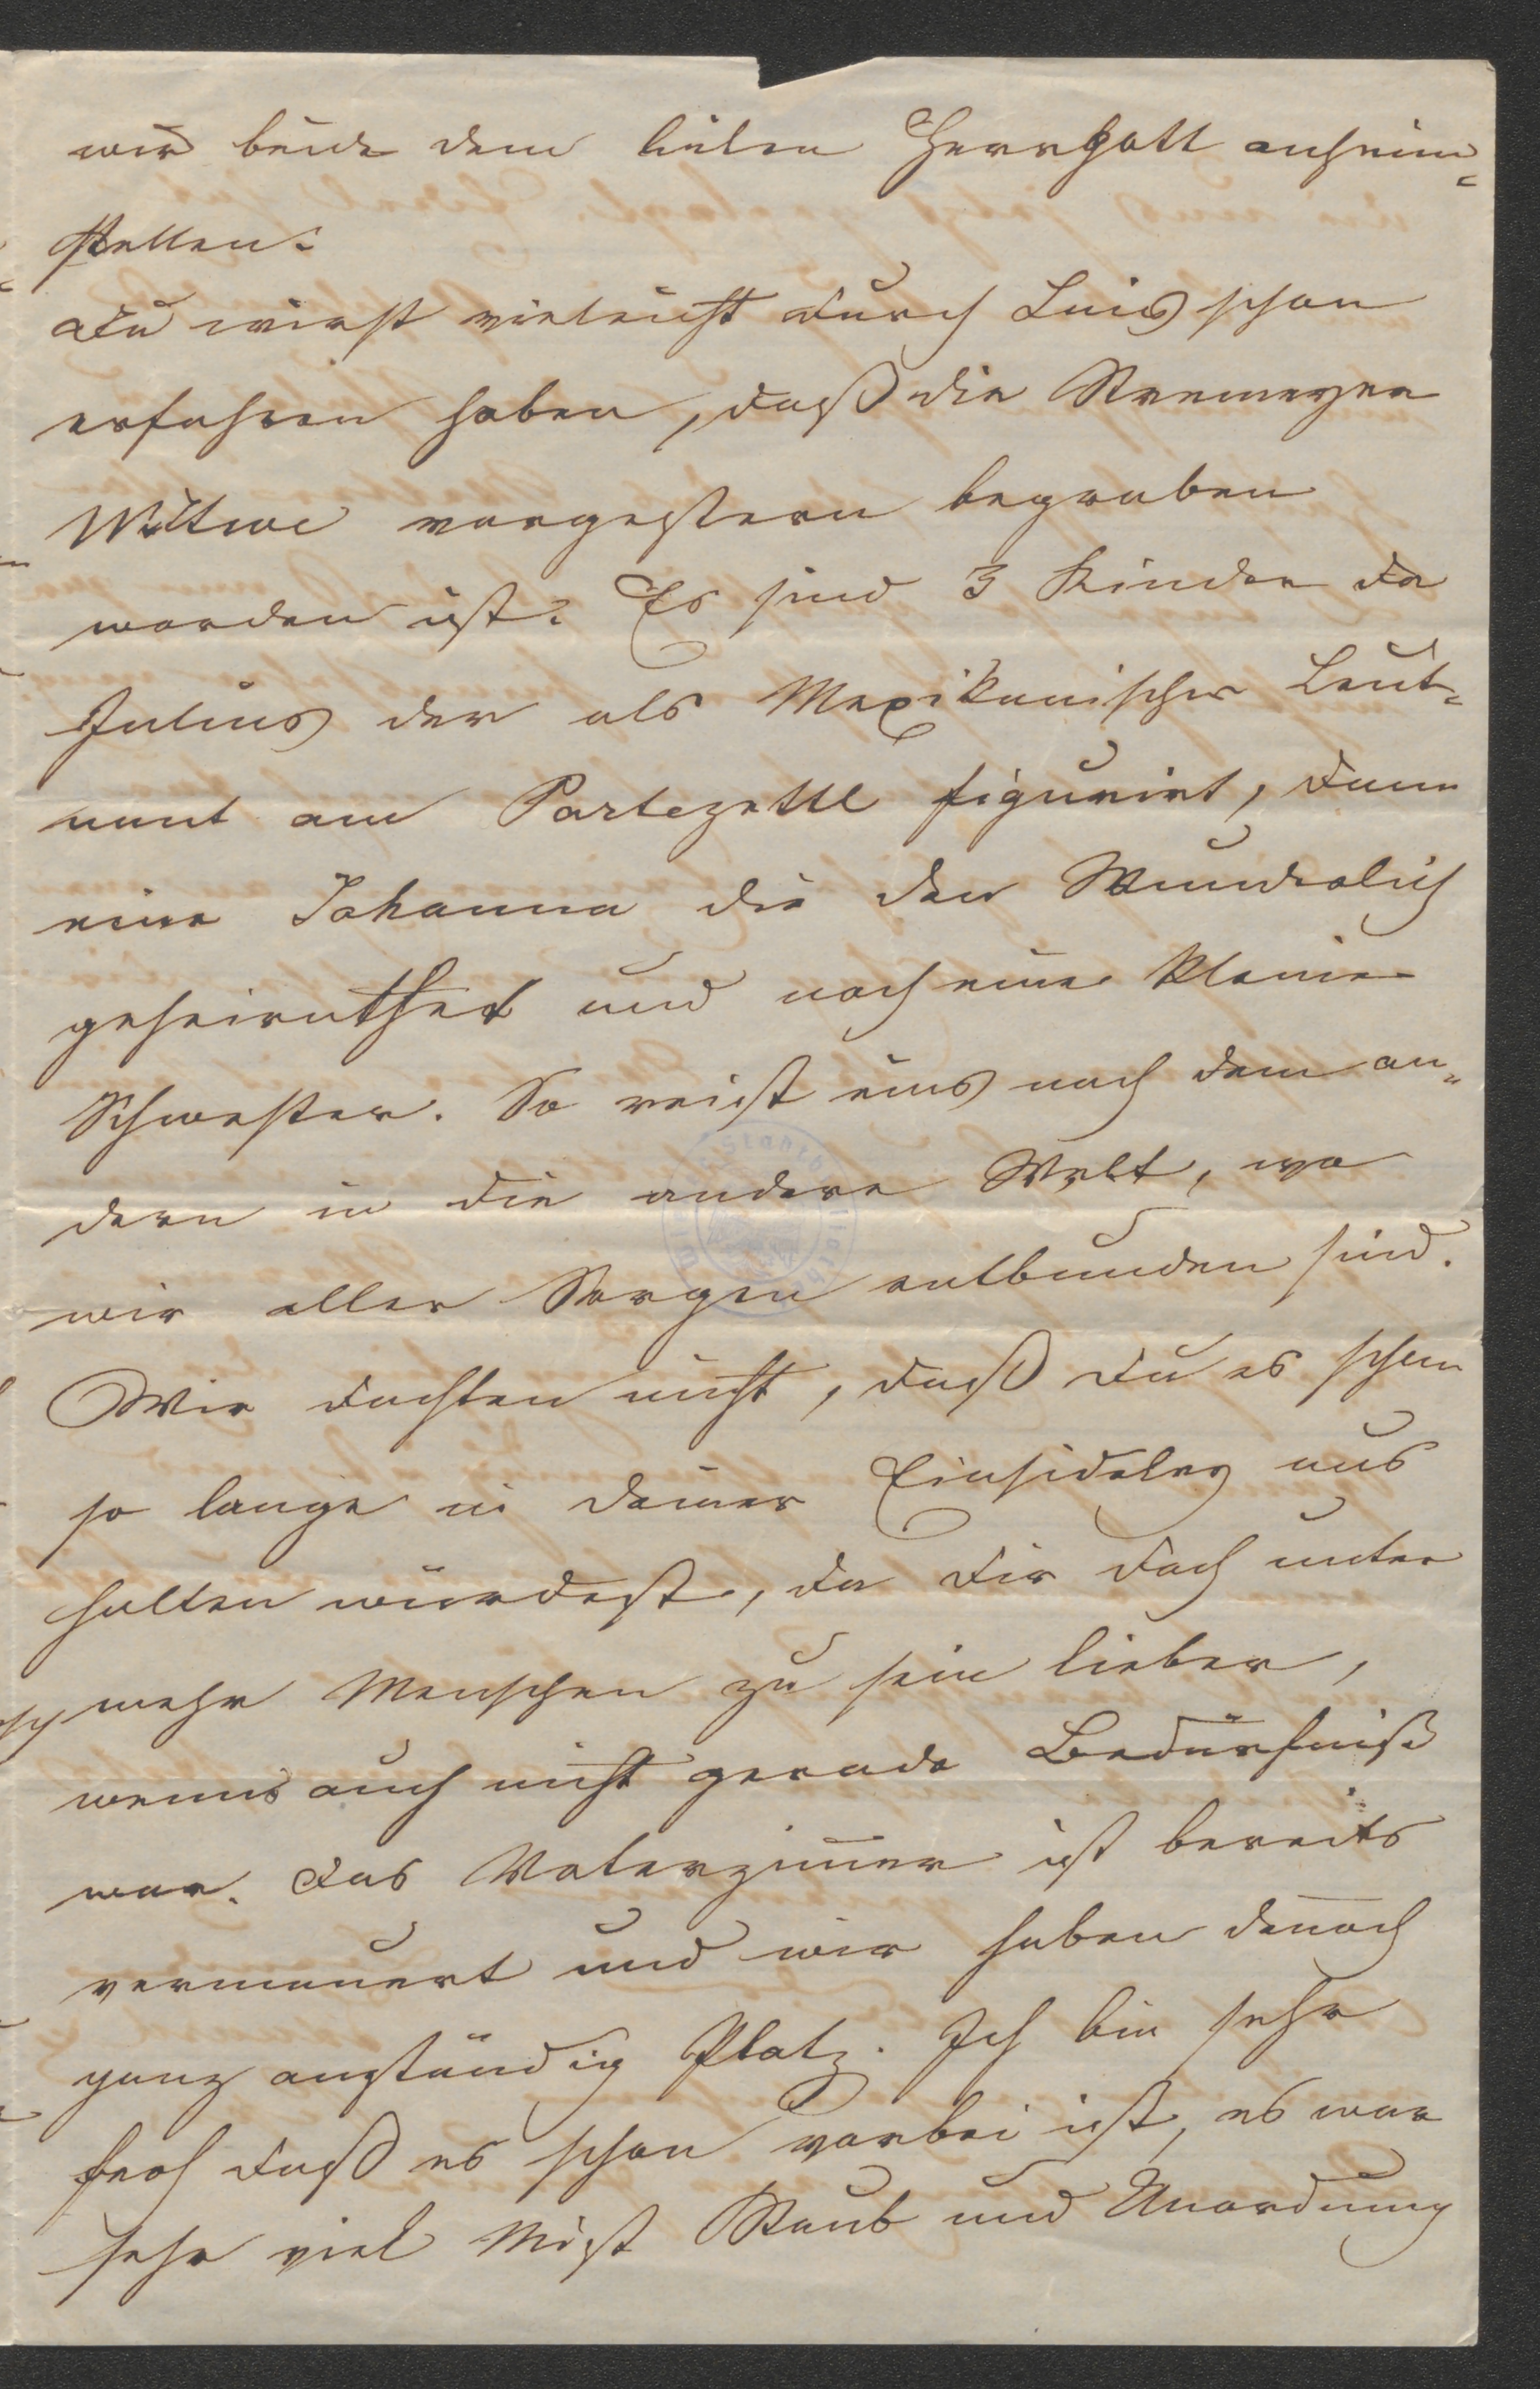 wir beide dem lieben Herrgott anheim=
stellen.
Du wirst vieleicht durch Luis schon
erfahren haben, daß die Stremeyer
Witwe vorgestern begraben
worden ist. Es sind 3 Kinder da
Julius der als Mexikanischer Leut=
nant am Partezettl figurirt, dann
eine Johanna die den Wunderlich
geheirathet und noch eine kleine
Schwester. So reist eins nach dem an=
dern in die andere Welt, wo
wir aller Sorgen entbunden sind.
Wir dachten nicht, daß du es schon
so lange in deiner Einsideley aus
halten würdest, da dir doch unter
mehr Menschen zu sein lieber,
wenns auch nicht gerade Bedürfniß
war. Das Vaterzim̅er ist bereits
vermauert und wir haben den̅och
ganz anständig Platz. Ich bin sehr
froh daß es schon vorbei ist, es war
sehr viel Mist Staub und Unordnung